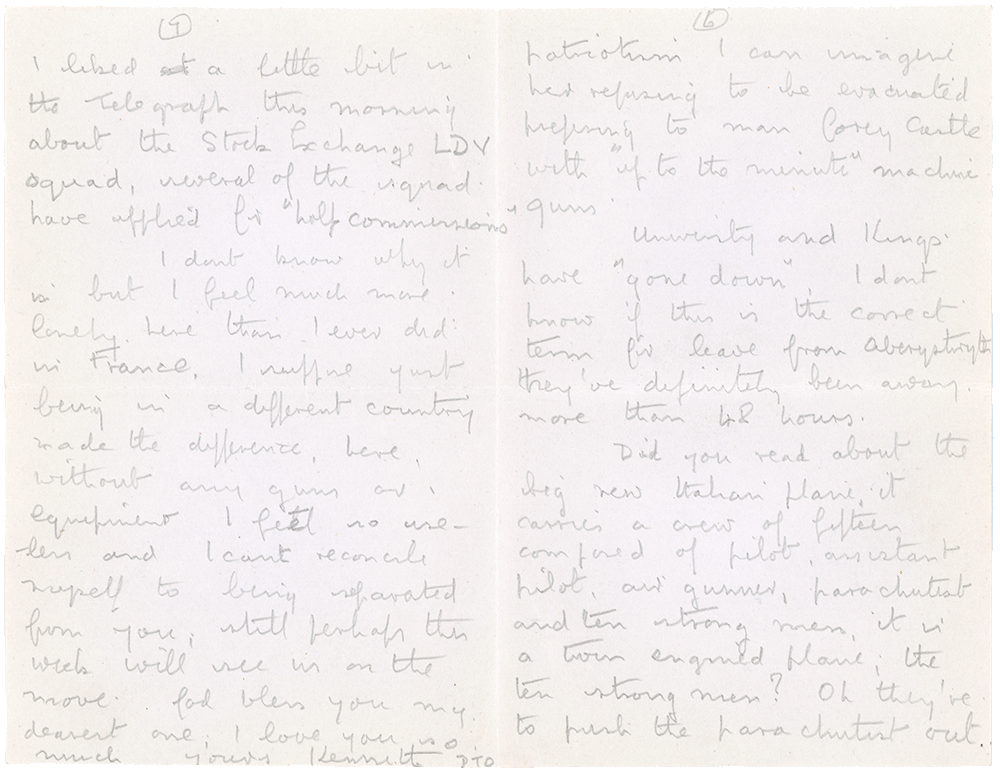 9
I liked ~~at~~ a little bit in
~~the~~ Telegraph this morning
about the Stock Exchange LDV
squad, several of the squad
have applied for "half commissions"
I dont know why it
is but I feel much more
lonely here than I ever did
in France, I suppose just
being in a different country
made the difference, here,
without any guns or
equipment I feel so use-
-less and I cant reconcile
myself to being separated
from you, still perhaps this
week will see us on the
move. God bless you my
dearest one, I love you so
much yours Kenneth PTO
patriotism I can imagine
her refusing to be evacuated
prefering to man Corey Castle
with "up to the minute" machine
guns.
University and Kings
have "gone down", I dont
know if this is the correct
term for leave from Aberystwyth
they've definitely been away
more than 48 hours.
Did you read about the
big new Italian plane, it
carries a crew of fifteen
composed of pilot, assistant
pilot, air gunner, parachutist
and ten strong men, it is
a twin engined plane; the
ten strong men? Oh they're
to push the parachutist out.